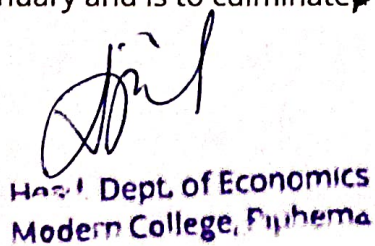 nuary and is to culminate
Head Dept. of Economics
Modern College, Piphema